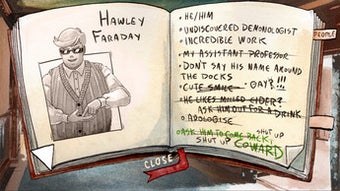 HAWLEY
FARADAY
• HE/HIM
• UNDISCOVERED DEMONOLOGIST
• INCREDIBLE WORK
• MY ASSISTANT PROFESSOR
• DON'T SAY HIS NAME AROUND
THE DOCKS
• CUTE SMILE GAY?!!!
• HE LIKES MULLED CIDER?
ASK HIM OUT FOR A DRINK
• APOLOGISE
• ASK HIM TO COME BACK! SHUT UP
SHUT UP COWARD
PEOPLE
CLOSE